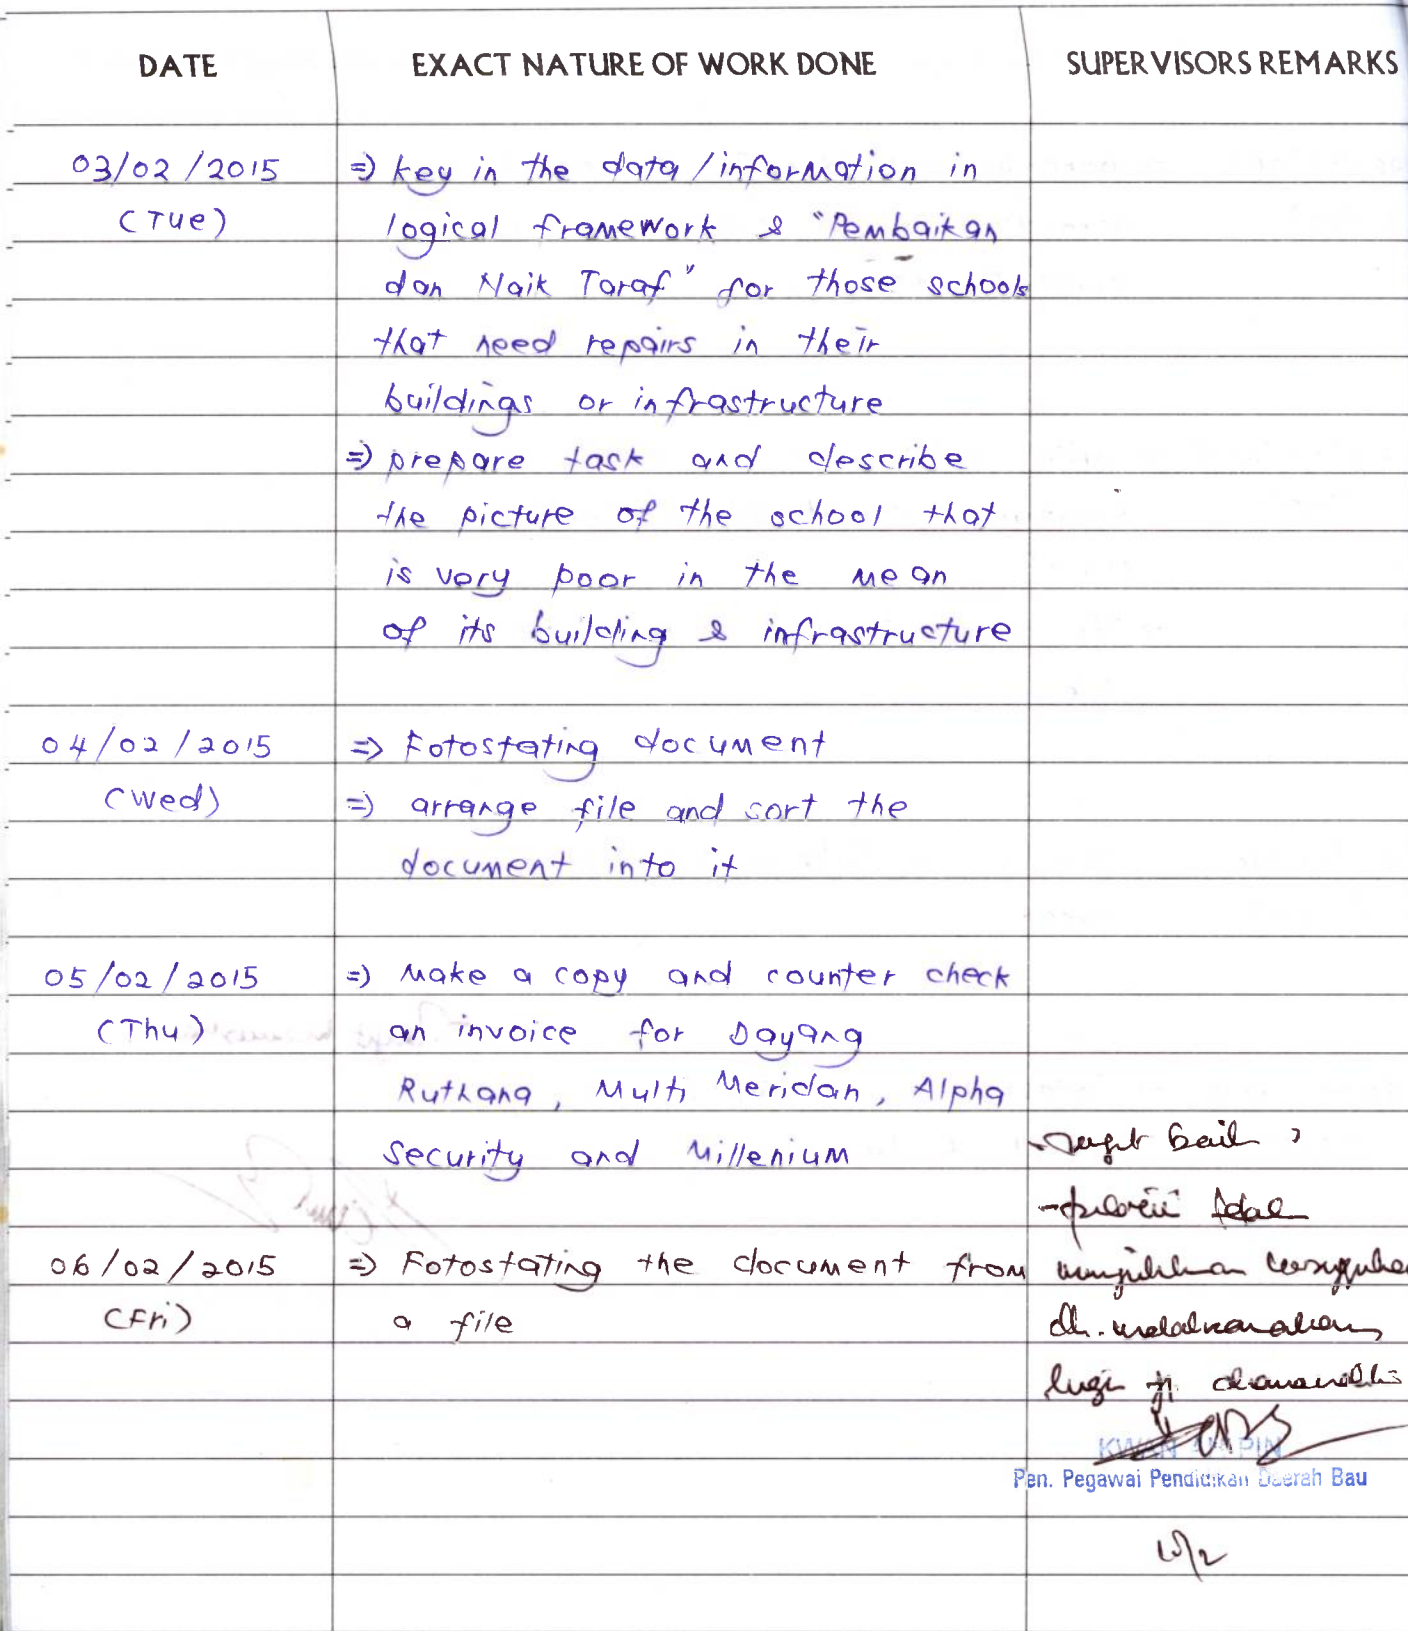 DATE EXACT NATURE OF WORK DONE SUPERVISORS REMARKS
03/02/2015 => key in the data/information in
(Tue) logical framework & "Pembaikan
dan Naik Taraf" for those schools
that need repairs in their
buildings or infrastructure
=> prepare task and describe
the picture of the school that
is very poor in the mean
of its building & infrastructure
04/02/2015 => Fotostating document
(Wed) => arrange file and sort the
document into it
05/02/2015 => Make a copy and counter check
(Thu) an invoice for Dayang
Ruthana, Multi Meridan, Alpha
Security and Millenium
06/02/2015 => Fotostating the document from
(Fri) a file
KWAN
Pen. Pegawai Pendidikan Daerah Bau